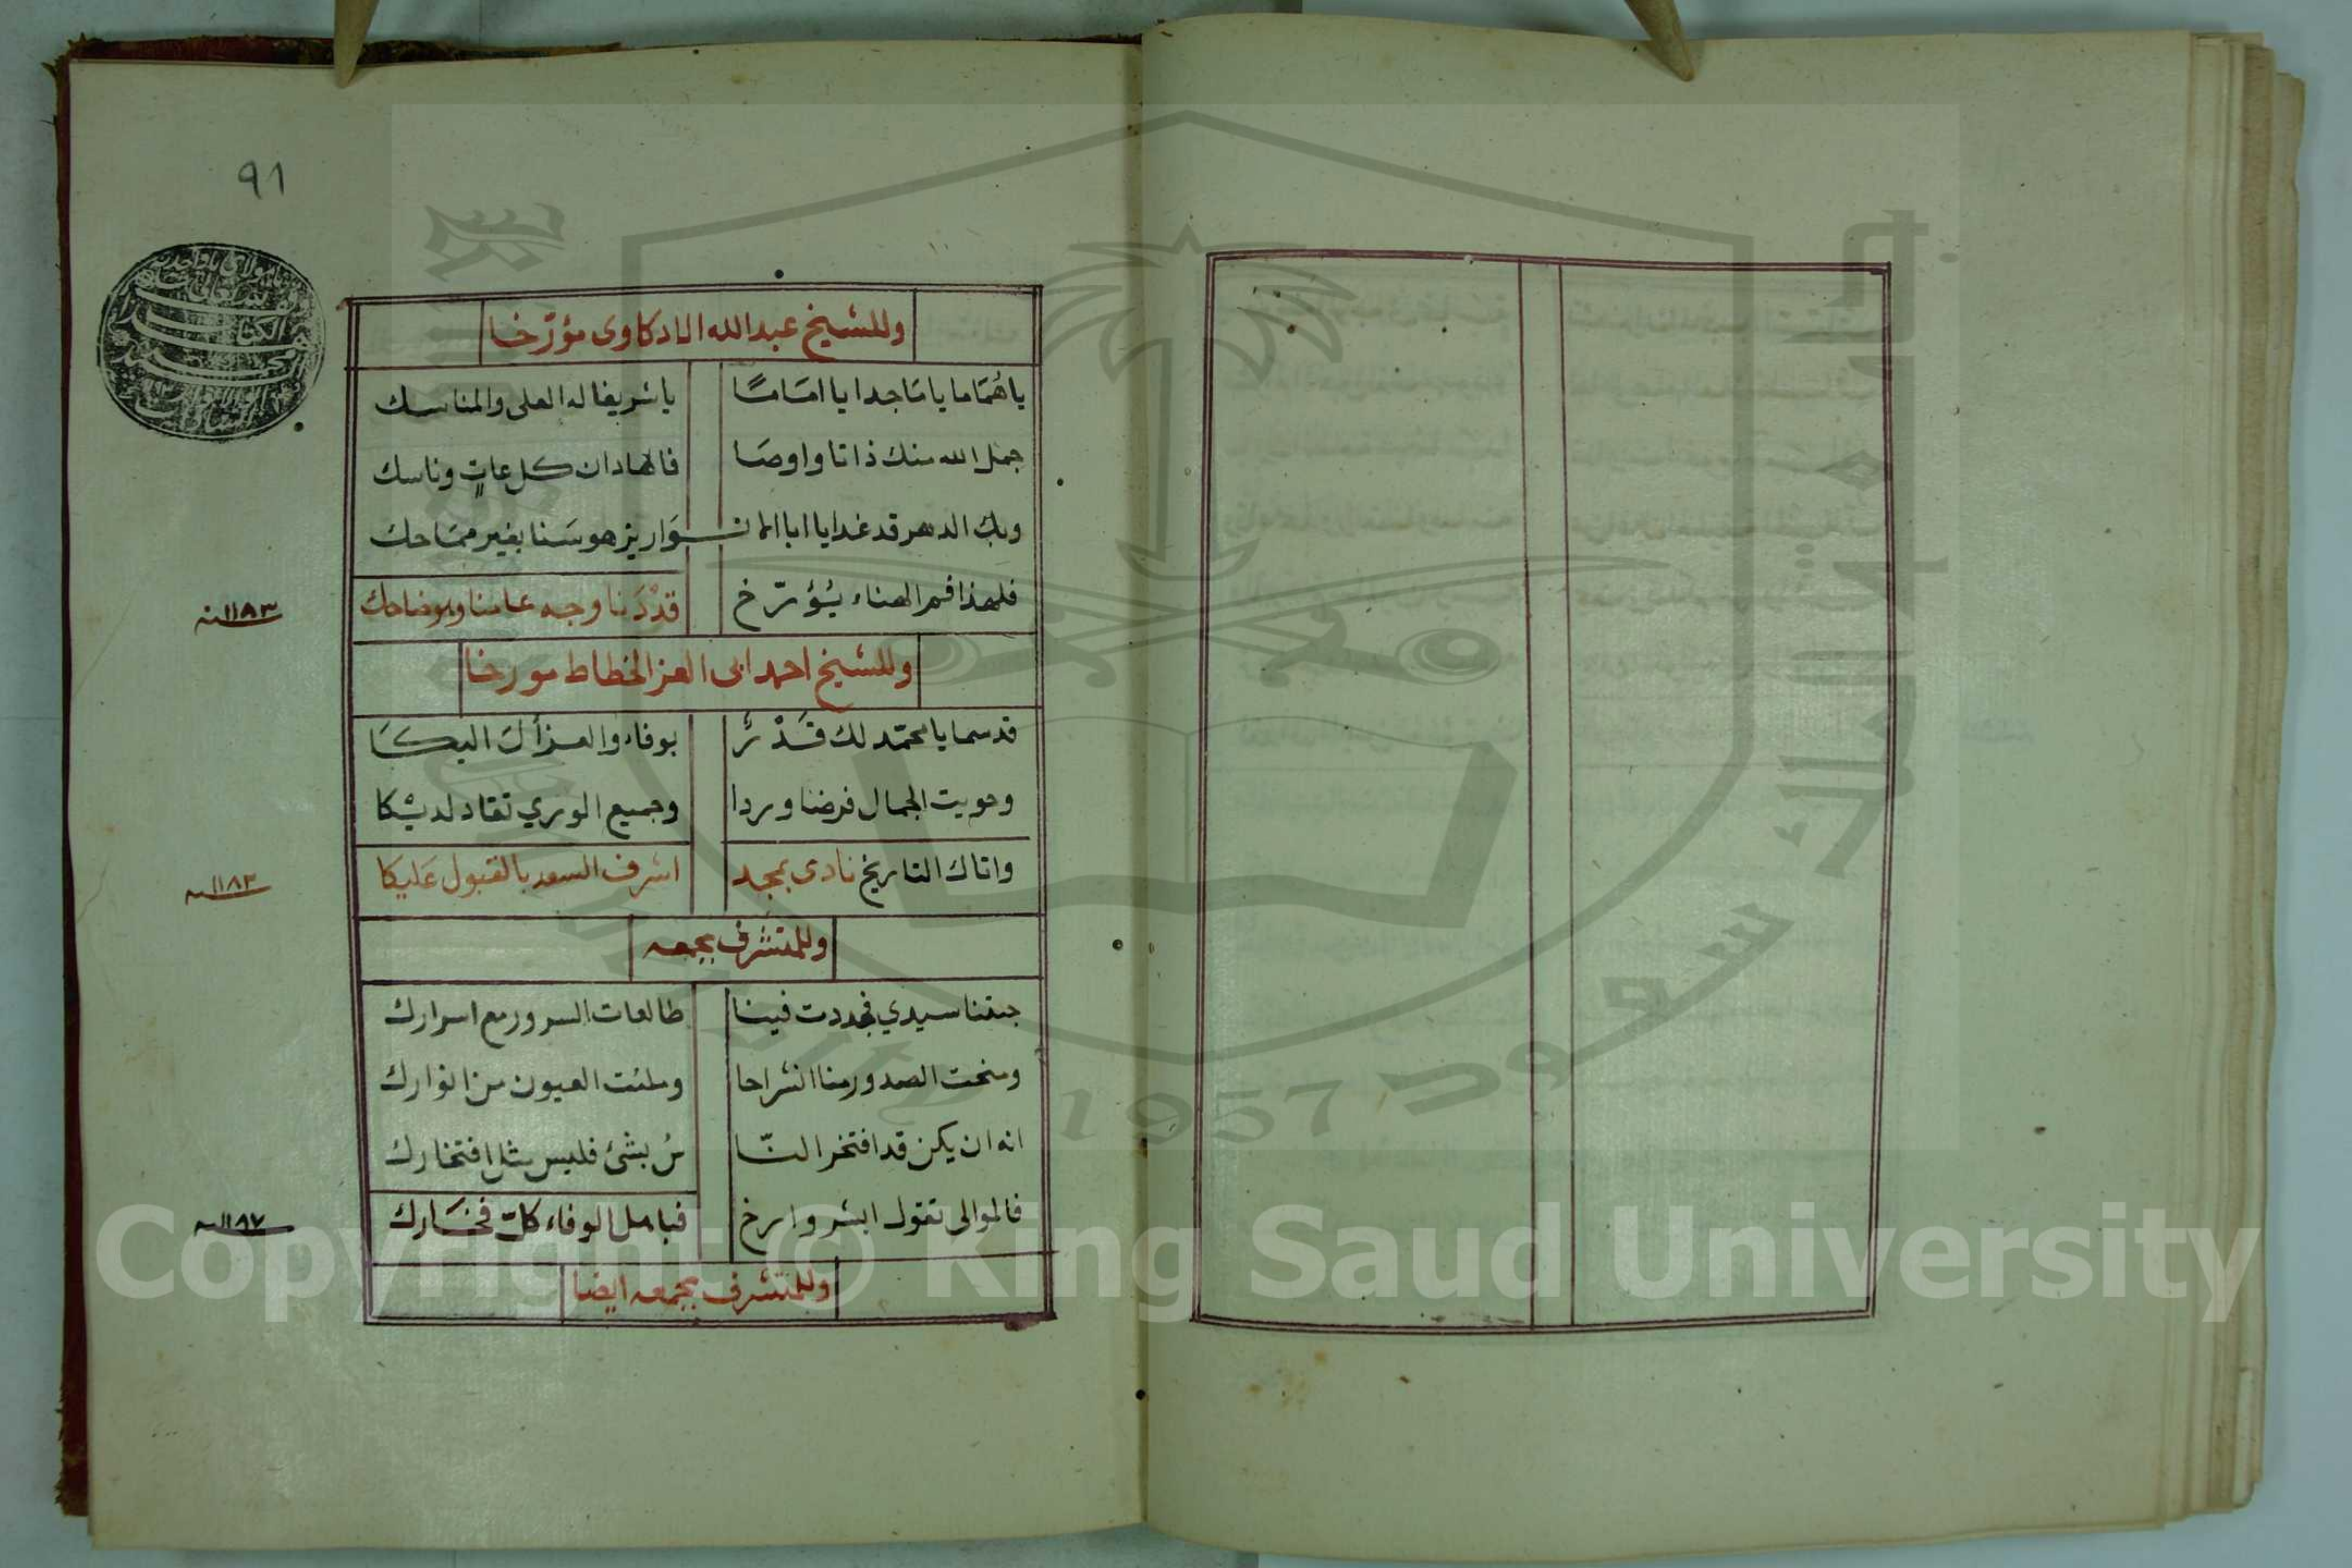 ٩١
وللشيخ عبد الله الادكاوى مؤرّخا
ياهُمَاما يا مَاجدا يا امَامًا ياشريفا له العلى والمناسك
جمل الله منك ذاتا واوصَا فا لها دان كل عاتٍ وناسك
وبك الدهر قد غدا يا ابا الانـ ـوَار يزهو سَنا بغير مماحك
فلهذا فم الهناء يُؤرّخ قدْ دَنا وجه عامنا وهوضاحك
١١٨٣سنه
وللشيخ احمد ابى العز الخطاط مورخا
قد سما يا محمّد لك قَدْرٌ بوفاء والعز أل اليكَا
وحويت الجمال فرضنا وردا وجميع الورى تقاد لديْكا
واتاك التاريخ نادى بمجد اشرف السعد بالقبول عَليكا
١١٨٣سنه
وللمتشرف بجمعه
جئتنا سيدي فجددت فينا طالعات السرور مع اسرارك
ومنحت الصدور منا انشراحا وملئت العيون من انوارك
انه ان يكن قد افتخر النّا سُ بشئ فليس مثل افتخارك
فالموالى تقول ابشر وارخ فبامل الوفاء كلّ فخَارك
١١٨٧سنه
وللمتشرف بجمعه ايضا
1957
Copyright © King Saud University